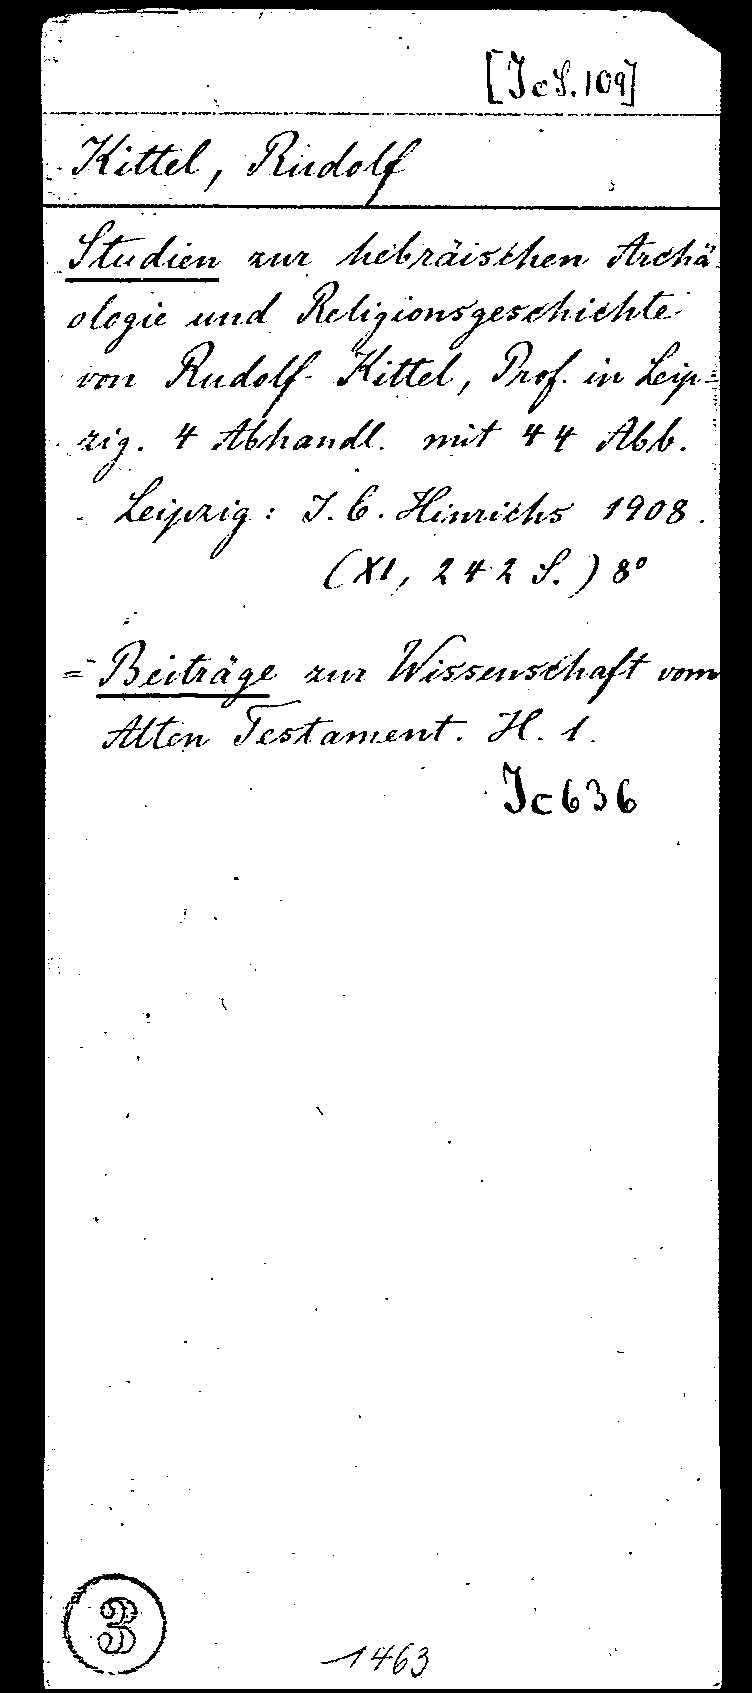 [Jc S. 109]
Kittel, Rudolf
Studien zur hebräischen Archä-
ologie und Religionsgeschichte
von Rudolf Kittel, Prof. in Leip=
zig. 4 Abhandl. mit 44 Abb.
Leipzig: J. C. Hinrichs 1908.
(XI, 242 S.) 8°
= Beiträge zur Wissenschaft vom
Alten Testament. H. 1.
Jc 636
3
1463